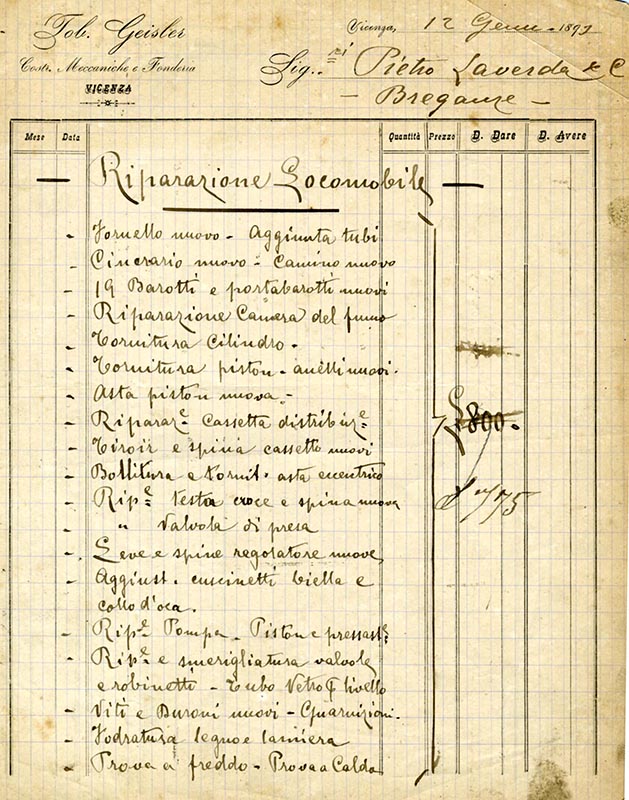 Tob. Geisler
Costr. Meccaniche e Fonderia
VICENZA
Vicenza, 12 Genn. 1893
Sig.ri Pietro Laverda & C
- Breganze -
Mese Data Quantità Prezzo D. Dare D. Avere
— Riparazione Locomobile —
- Fornello nuovo - Aggiunta tubi
- Cinerario nuovo - Camino nuovo
- 19 Barotti e portabarotti nuovi
- Riparazione Camera del fumo
- Tornitura Cilindro -
- Tornitura piston - anelli nuovi.
- Asta piston nuova -
- Riparaz.e cassetta distribuz.e £800.
- Tiroir e spina cassetto nuovi
- Bollitura e tornit. asta eccentrico
- Rip.e testa croce e spina nuova £ 775
- " valvola di presa
- Leve e spine regolatore nuove
- Aggiust. cuscinetti biella e
collo d'oca.
- Rip.e Pompa - Piston e
- Rip.e e smerigliatura valvole
e robinetti - Tubo Vetro livello
- Viti e Buroni nuovi - Guarnizioni.
- Fodratura legno e lamiera
- Prova a freddo - Prova a Caldo